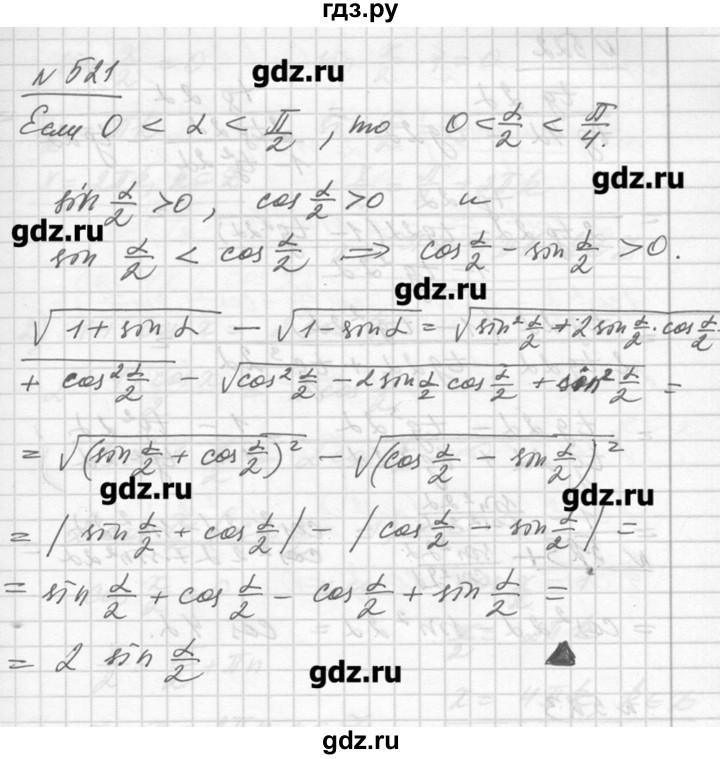 гдз.ру
gdz.ru
N 521
Если 0 < α < π/2, то 0 < α/2 < π/4.
gdz.ru
sin α/2 > 0, cos α/2 > 0 и
gdz.ru
sin α/2 < cos α/2 ⇒ cos α/2 - sin α/2 > 0.
gdz.ru
√(1 + sin α) - √(1 - sin α) = √(sin² α/2 + 2 sin α/2 · cos α/2
+ cos² α/2) - √(cos² α/2 - 2 sin α/2 cos α/2 + sin² α/2) =
= √((sin α/2 + cos α/2)²) - √((cos α/2 - sin α/2)²)
gdz.ru
gdz.ru
= | sin α/2 + cos α/2 | - | cos α/2 - sin α/2 | =
= sin α/2 + cos α/2 - cos α/2 + sin α/2 =
= 2 sin α/2 ▲
gdz.ru
gdz.ru